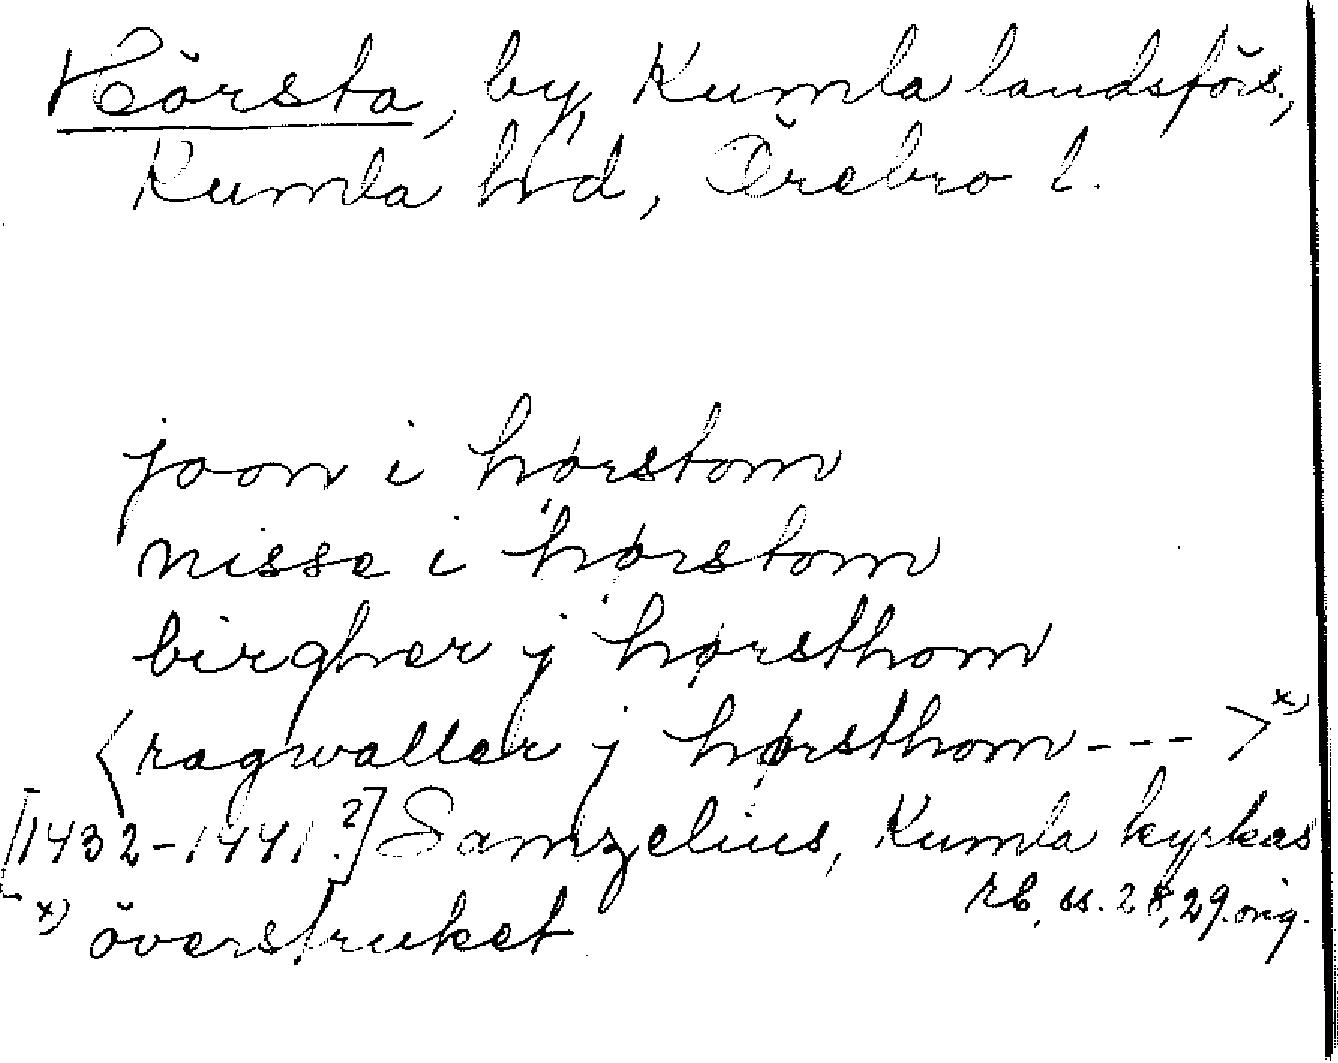 Hörsta, by, Kumla landsförs.,
Kumla hd, Örebro l.
joon i hørstom
nisse i hørstom
birgher j hørsthom
<ragwaller j hørsthom --- >x)
[1432-1441?] Samzelius, Kumla kyrkas
rb, ss. 28, 29. orig.
x) överstruket